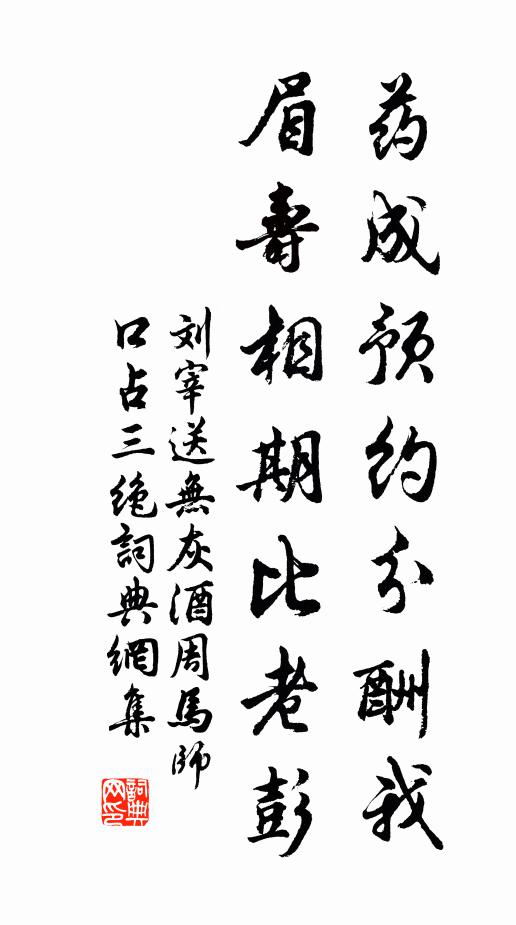 药成预约分酬我
眉壽相期比老彭
刘宰送無灰酒周馬师
口占三绝詞典網集
詞典網印